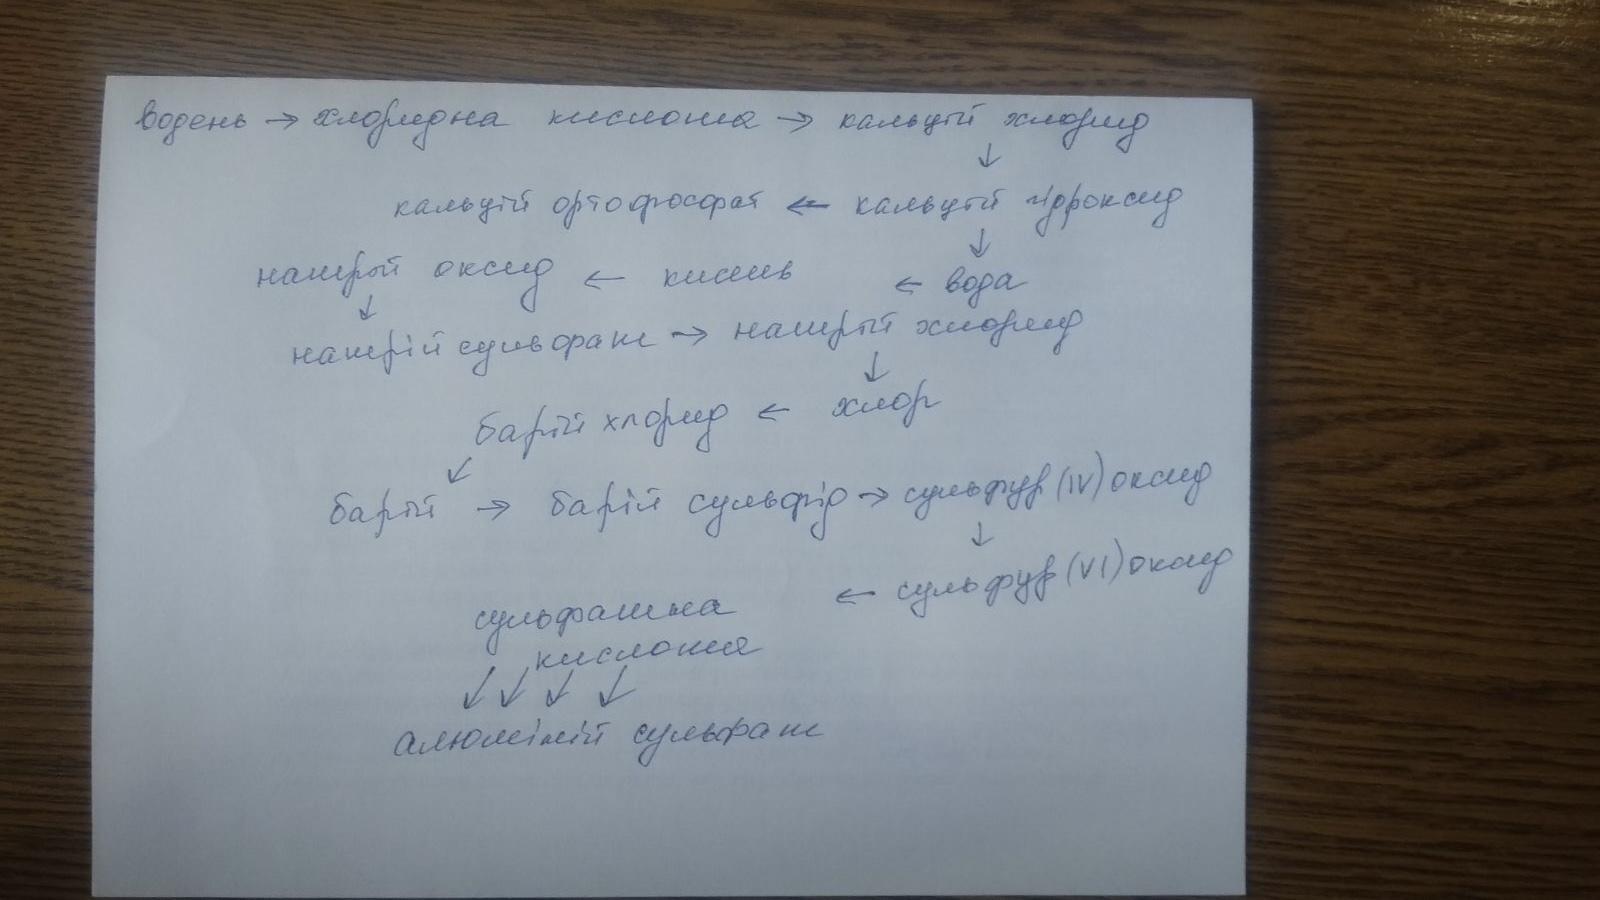 водень → хлоридна кислота → кальцій хлорид
↓
кальцій ортофосфат ← кальцій гідроксид
↓
натрій оксид ← кисень ← вода
↓
натрій сульфат → натрій хлорид
↓
барій хлорид ← хлор
↙
барій → барій сульфід → сульфур (IV) оксид
↓
сульфатна ← сульфур (VI) оксид
кислота
↓ ↓ ↓ ↓
алюміній сульфат